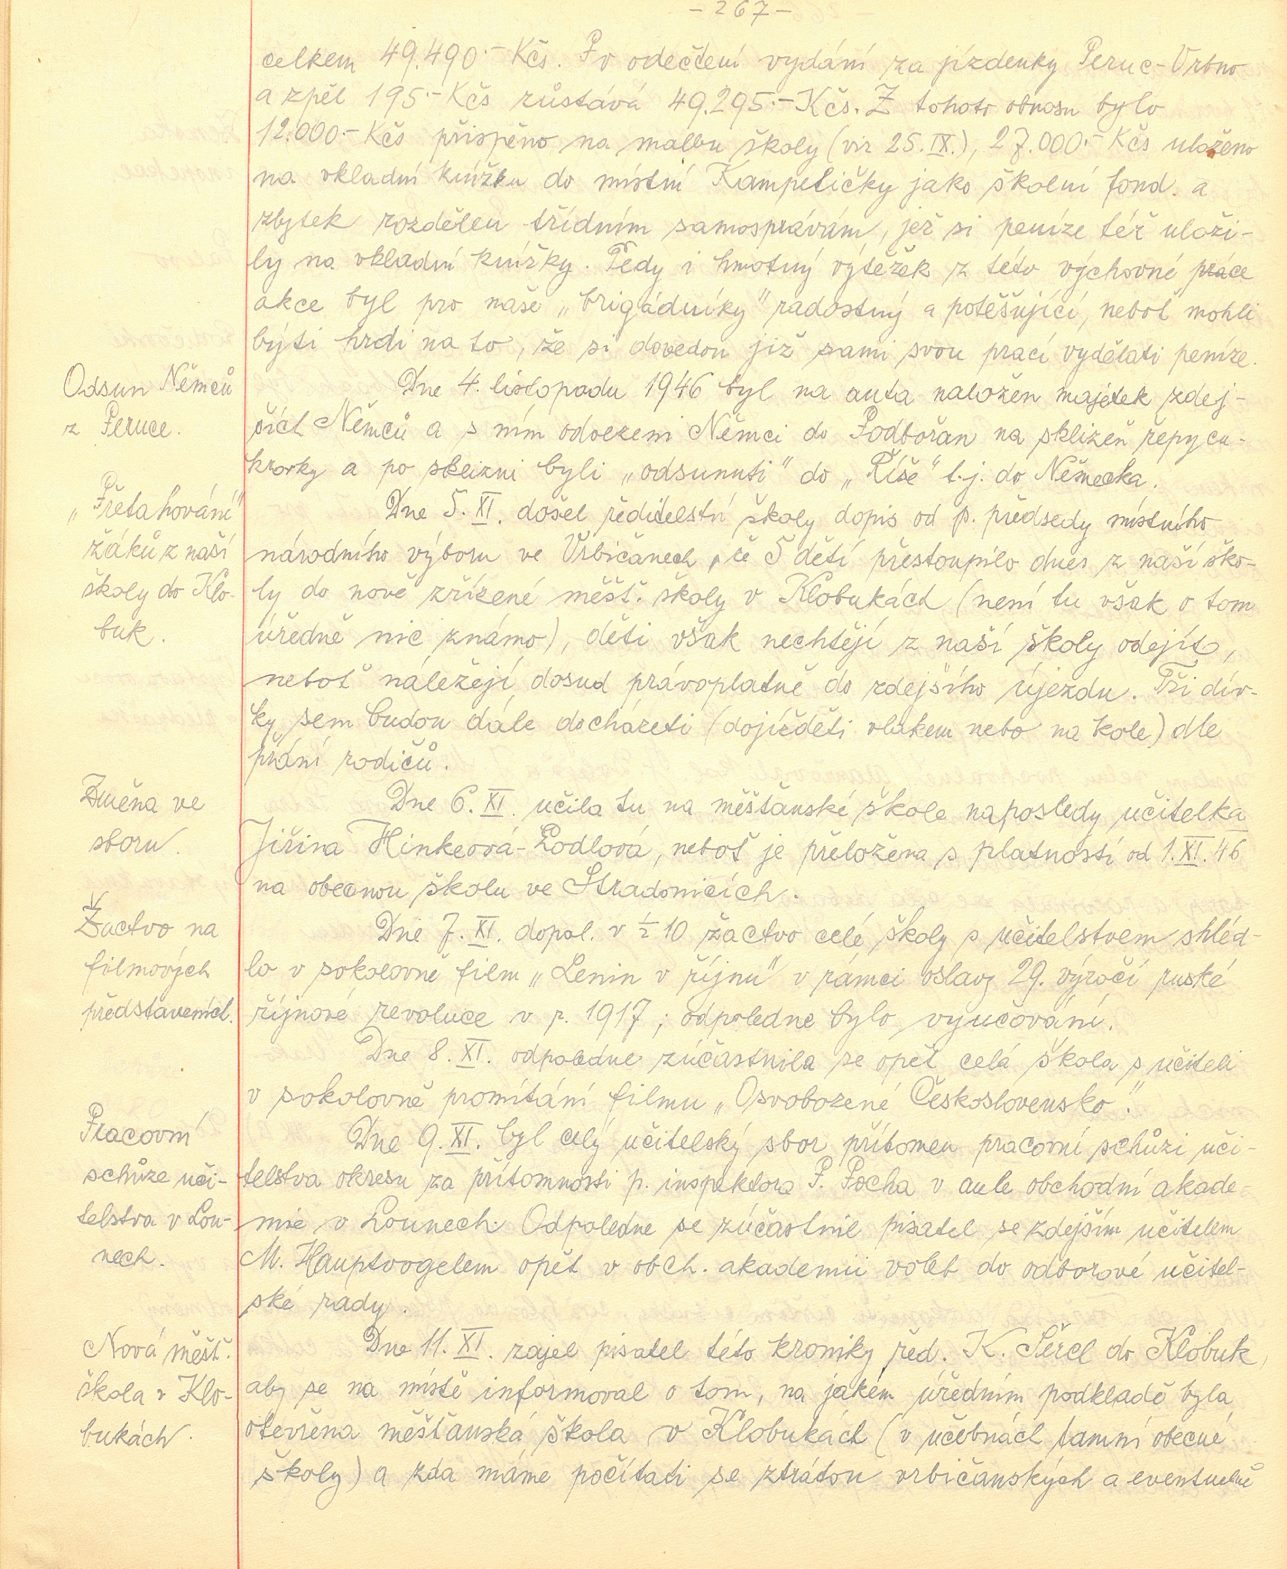 - 267 -
celkem 49.490·- Kčs. Po odečtení vydání za jízdenky Peruc-Vrbno
a zpět 195·- Kčs zůstává 49.295·- Kčs. Z tohoto obnosu bylo
12.000·- Kčs přispěno na malbu školy (viz 25. IX.), 27.000·- Kčs uloženo
na vkladní knížku do místní Kampeličky jako školní fond. a
zbytek rozdělen třídním samosprávám, jež si peníze též uloži-
ly na vkladní knížky. Tedy i hmotný výtěžek z této výchovné práce
akce byl pro naše „brigádníky" radostný a potěšující, neboť mohli
býti hrdi na to, že si dovedou již sami svou prací vydělati peníze.
Odsun Němců
z Peruce.
Dne 4. listopadu 1946 byl na auta naložen majetek zdej-
ších Němců a s ním odvezeni Němci do Podbořan na sklizeň řepy cu-
krovky a po sklizni byli „odsunuti" do „Říše" t.j. do Německa.
„Přetahování"
žáků z naší
školy do Klo-
buk.
Dne 5. XI. došel ředitelství školy dopis od p. předsedy místního
národního výboru ve Vrbičanech, že 5 dětí přestoupilo dnes z naší ško-
ly do nově zřízené měšť. školy v Klobukách (není tu však o tom
úředně nic známo), děti však nechtějí z naší školy odejít,
neboť náležejí dosud právoplatně do zdejšího újezdu. Tři dív-
ky sem budou dále docházeti (dojížděti vlakem nebo na kole) dle
přání rodičů.
Změna ve
sboru.
Dne 6. XI. učila tu na měšťanské škole naposledy učitelka
Jiřina Hinkeová-Podlová, neboť je přeložena s platností od 1. XI. 46
na obecnou školu ve Stradonicích.
Žactvo na
filmových
představeních.
Dne 7. XI. dopol. v ½ 10 žactvo celé školy s učitelstvem shléd-
lo v sokolovně film „Lenin v říjnu" v rámci oslavy 29. výročí ruské
říjnové revoluce v r. 1917; odpoledne bylo vyučování.
Dne 8. XI. odpoledne zúčastnila se opět celá škola s učiteli
v sokolovně promítání filmu „Osvobozené Československo".
Pracovní
schůze uči-
telstva v Lou-
nech.
Dne 9. XI. byl celý učitelský sbor přítomen pracovní schůzi uči-
telstva okresu za přítomnosti p. inspektora P. Pocha v aule obchodní akade-
mie v Lounech. Odpoledne se zúčastnil pisatel se zdejším učitelem
M. Hauptvogelem opět v obch. akademii voleb do odborové učitel-
ské rady.
Nová měšť.
škola v Klo-
bukách.
Dne 11. XI. zajel pisatel této kroniky řed. K. Pércl do Klobuk,
aby se na místě informoval o tom, na jakém úředním podkladě byla
otevřena měšťanská škola v Klobukách (v učebnách tamní obecné
školy) a zda máme počítati se ztrátou vrbičanských a eventuelně